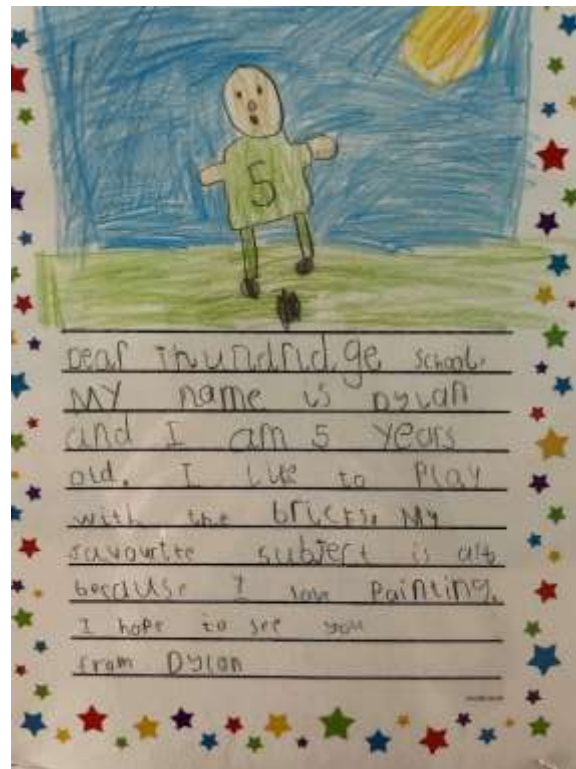 5
Dear Thundridge School.
MY name is Dylan
and I am 5 years
old. I like to Play
with the bricks. My
favourite subject is art
because I love Painting.
I hope to see you
from Dylan